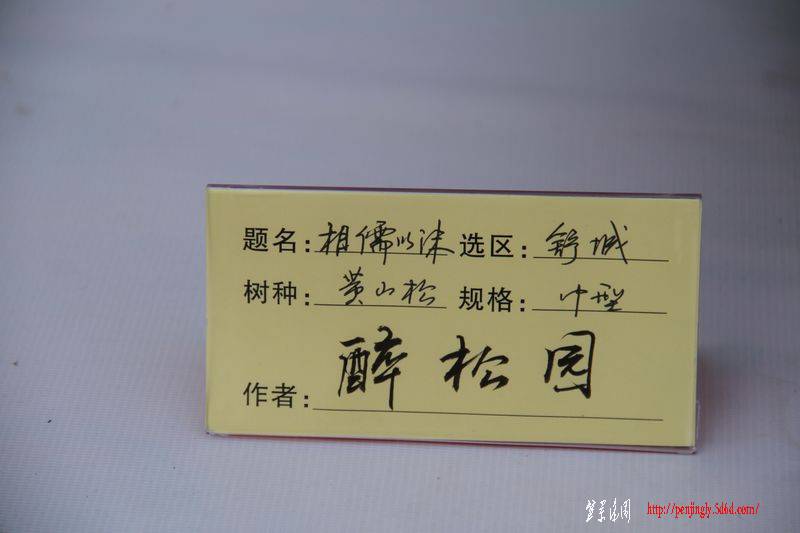 题名：相儒以沫 选区：舒城
树种：黄山松 规格：中型
作者：醉松园
http://penjingly.5d6d.com/